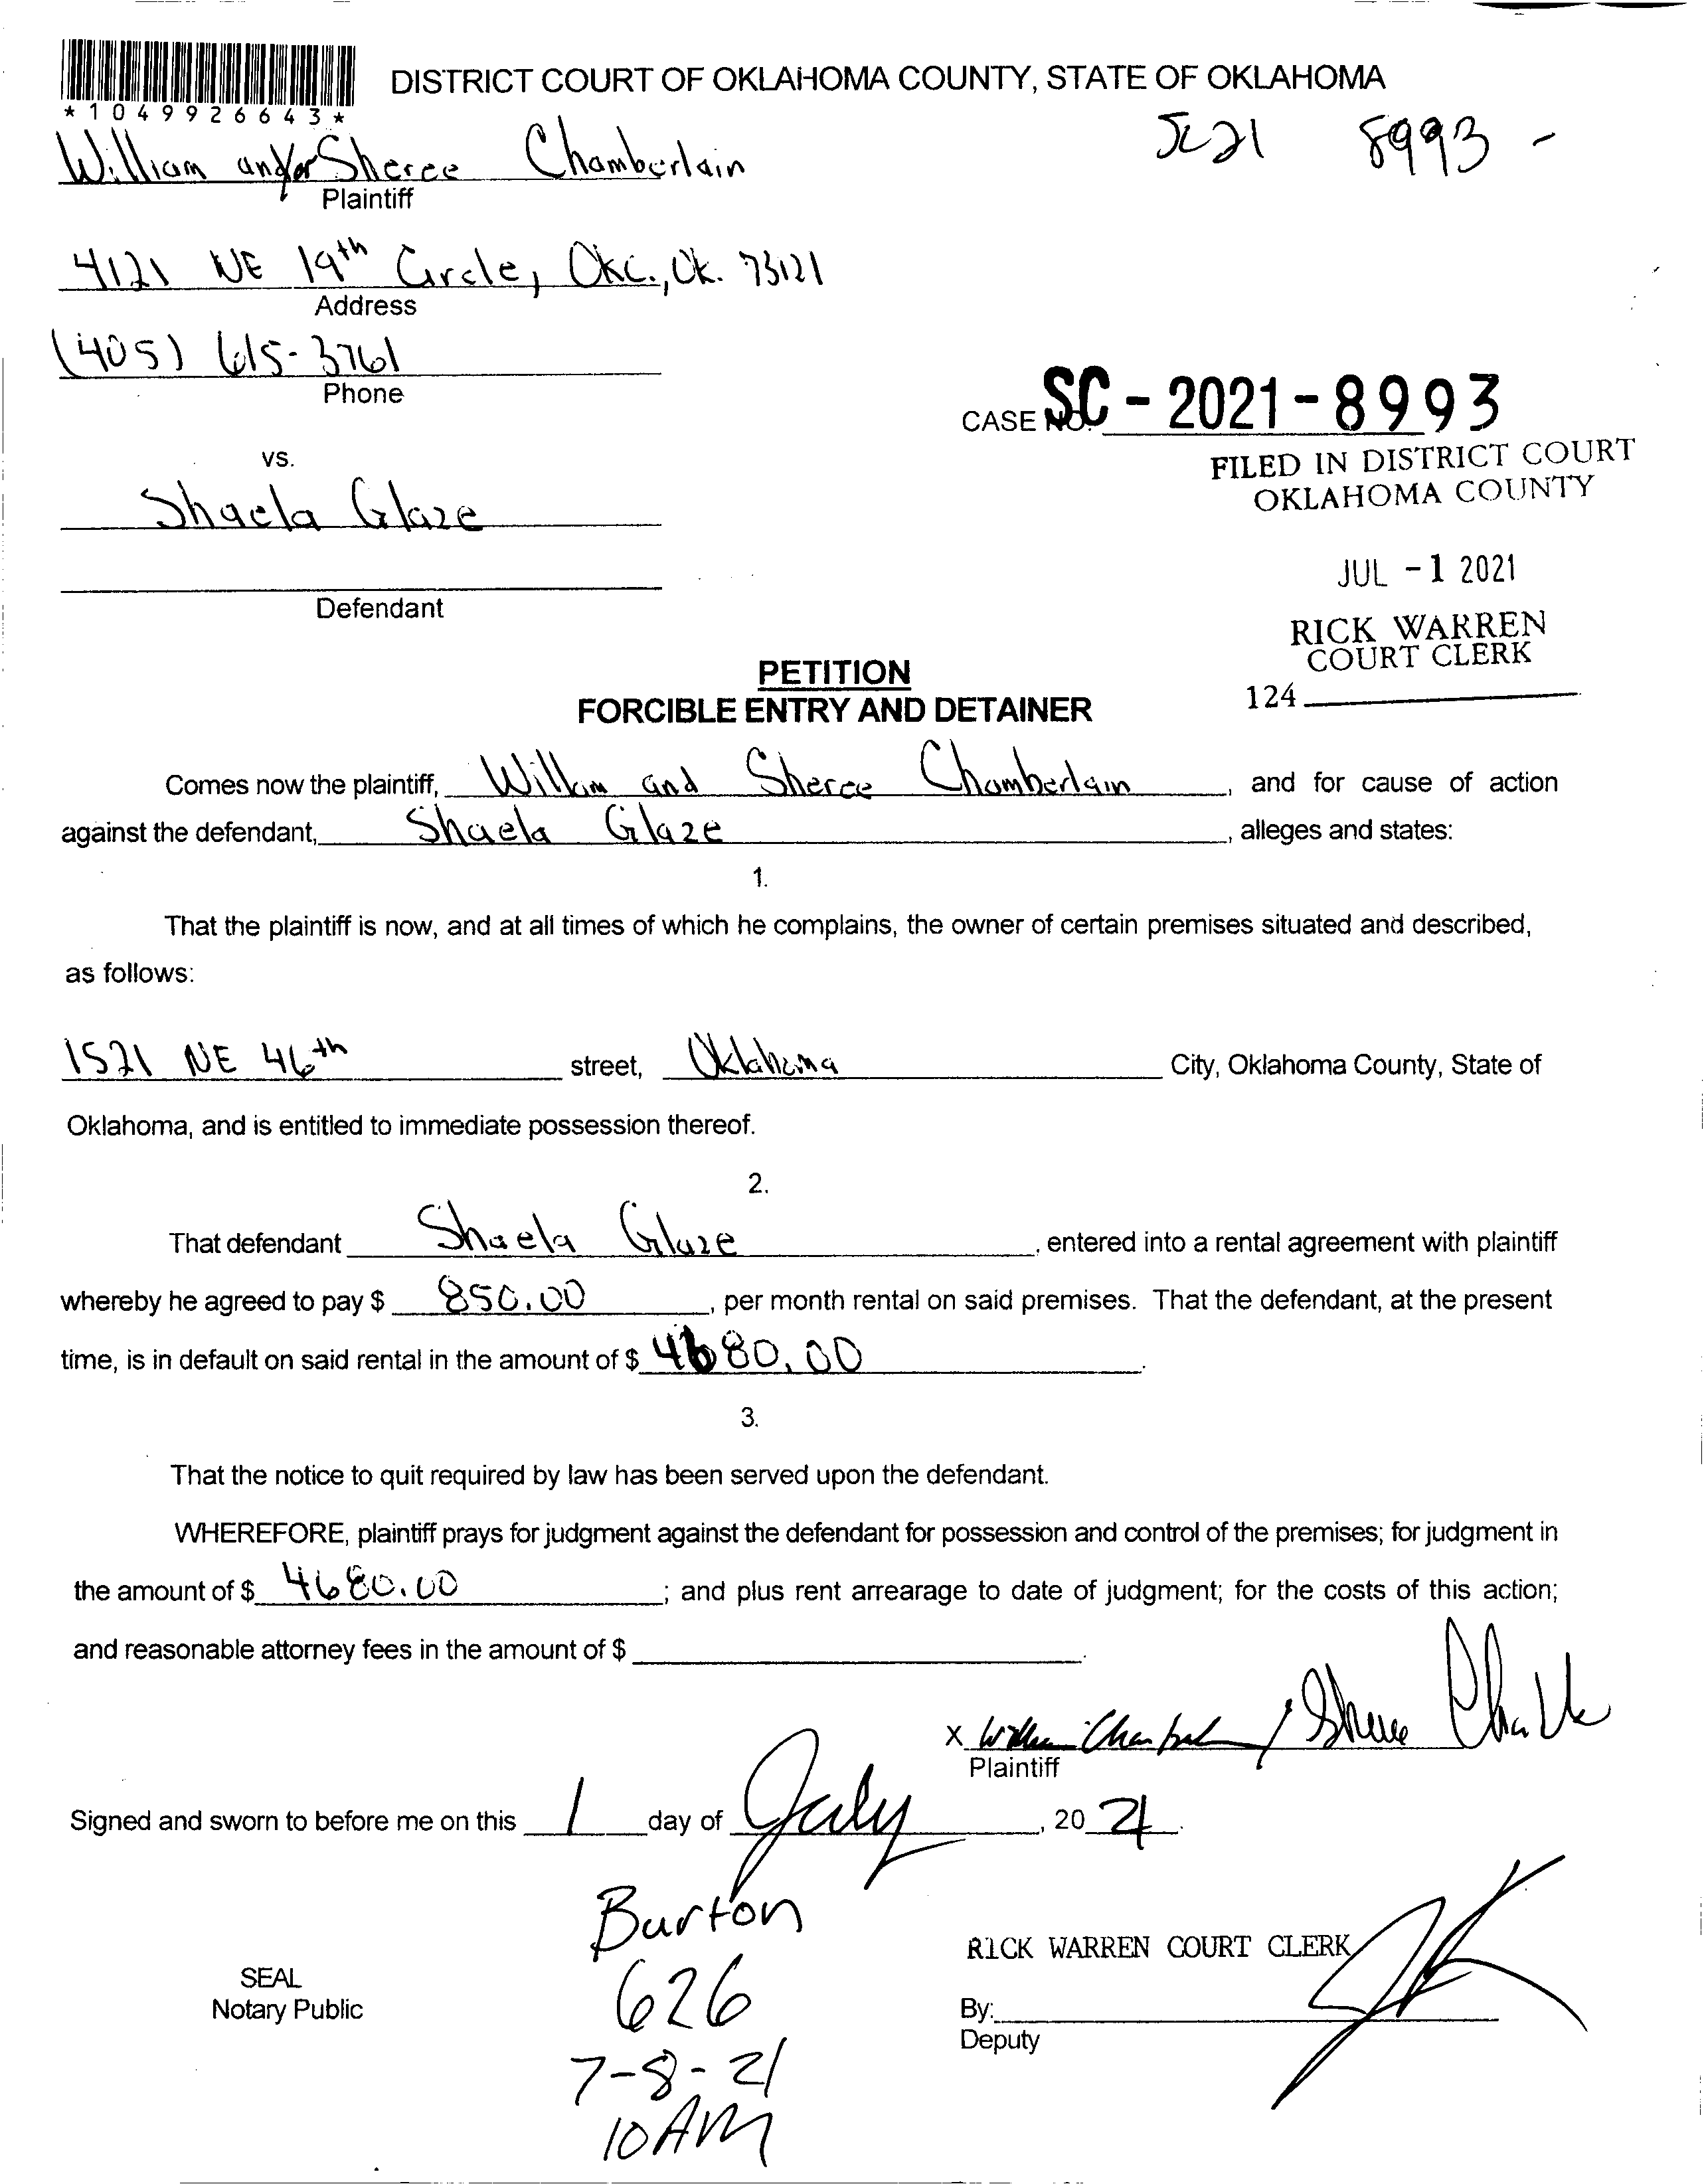 DISTRICT COURT OF OKLAHOMA COUNTY, STATE OF OKLAHOMA
*1049926643*
SC21 8993 -
William and/or Sheree Chamberlain
Plaintiff
4121 NE 19th Circle, Okc., Ok. 73121
Address
(405) 615-3761
Phone
CASE NO. SC-2021-8993
FILED IN DISTRICT COURT
OKLAHOMA COUNTY
vs.
Shaela Glaze
JUL -1 2021
Defendant
RICK WARREN
COURT CLERK
124
PETITION
FORCIBLE ENTRY AND DETAINER
Comes now the plaintiff, William and Sheree Chamberlain, and for cause of action
against the defendant, Shaela Glaze, alleges and states:
1.
That the plaintiff is now, and at all times of which he complains, the owner of certain premises situated and described,
as follows:
1521 NE 46th street, Oklahoma City, Oklahoma County, State of
Oklahoma, and is entitled to immediate possession thereof.
2.
That defendant Shaela Glaze, entered into a rental agreement with plaintiff
whereby he agreed to pay $ 850.00, per month rental on said premises. That the defendant, at the present
time, is in default on said rental in the amount of $ 4680.00.
3.
That the notice to quit required by law has been served upon the defendant.
WHEREFORE, plaintiff prays for judgment against the defendant for possession and control of the premises; for judgment in
the amount of $ 4680.00; and plus rent arrearage to date of judgment; for the costs of this action;
and reasonable attorney fees in the amount of $
X William Chamberlain / Sheree
Plaintiff
Signed and sworn to before me on this 1 day of July, 2021.
Burton
626
7-8-21
10AM
SEAL
Notary Public
RICK WARREN COURT CLERK
By:
Deputy